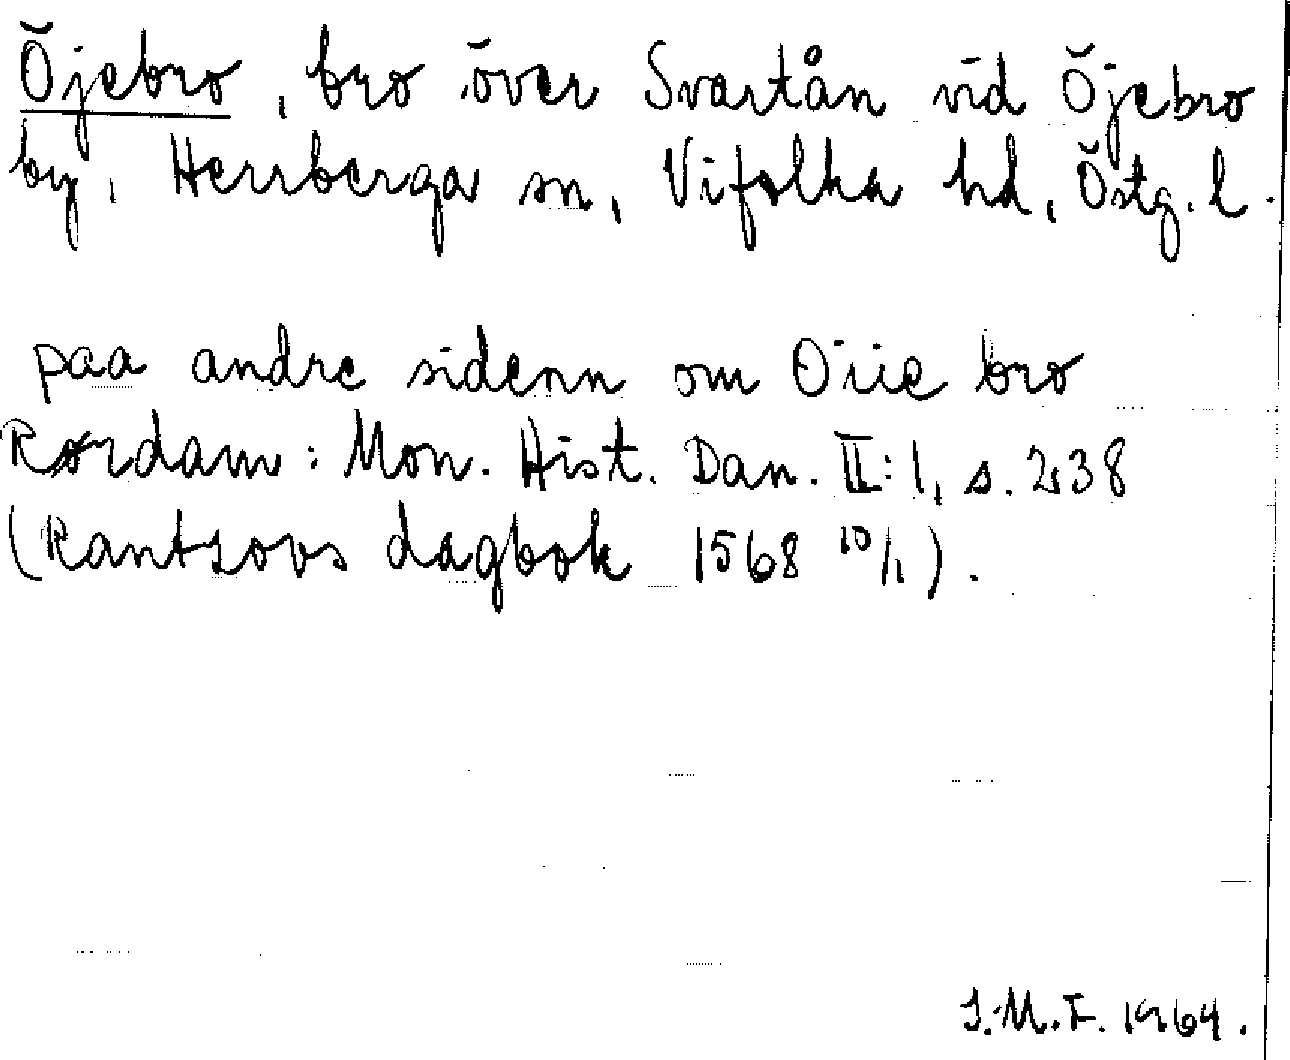 Öjebro, bro över Svartån vid Öjebro
by, Herrberga sn, Vifolka hd, Östg. l.
paa andre sidenn om Öiie bro
Rørdam: Mon. Hist. Dan. II:1, s. 238
(Rantzovs dagbok 1568 10/1).
J.M.F. 1964.